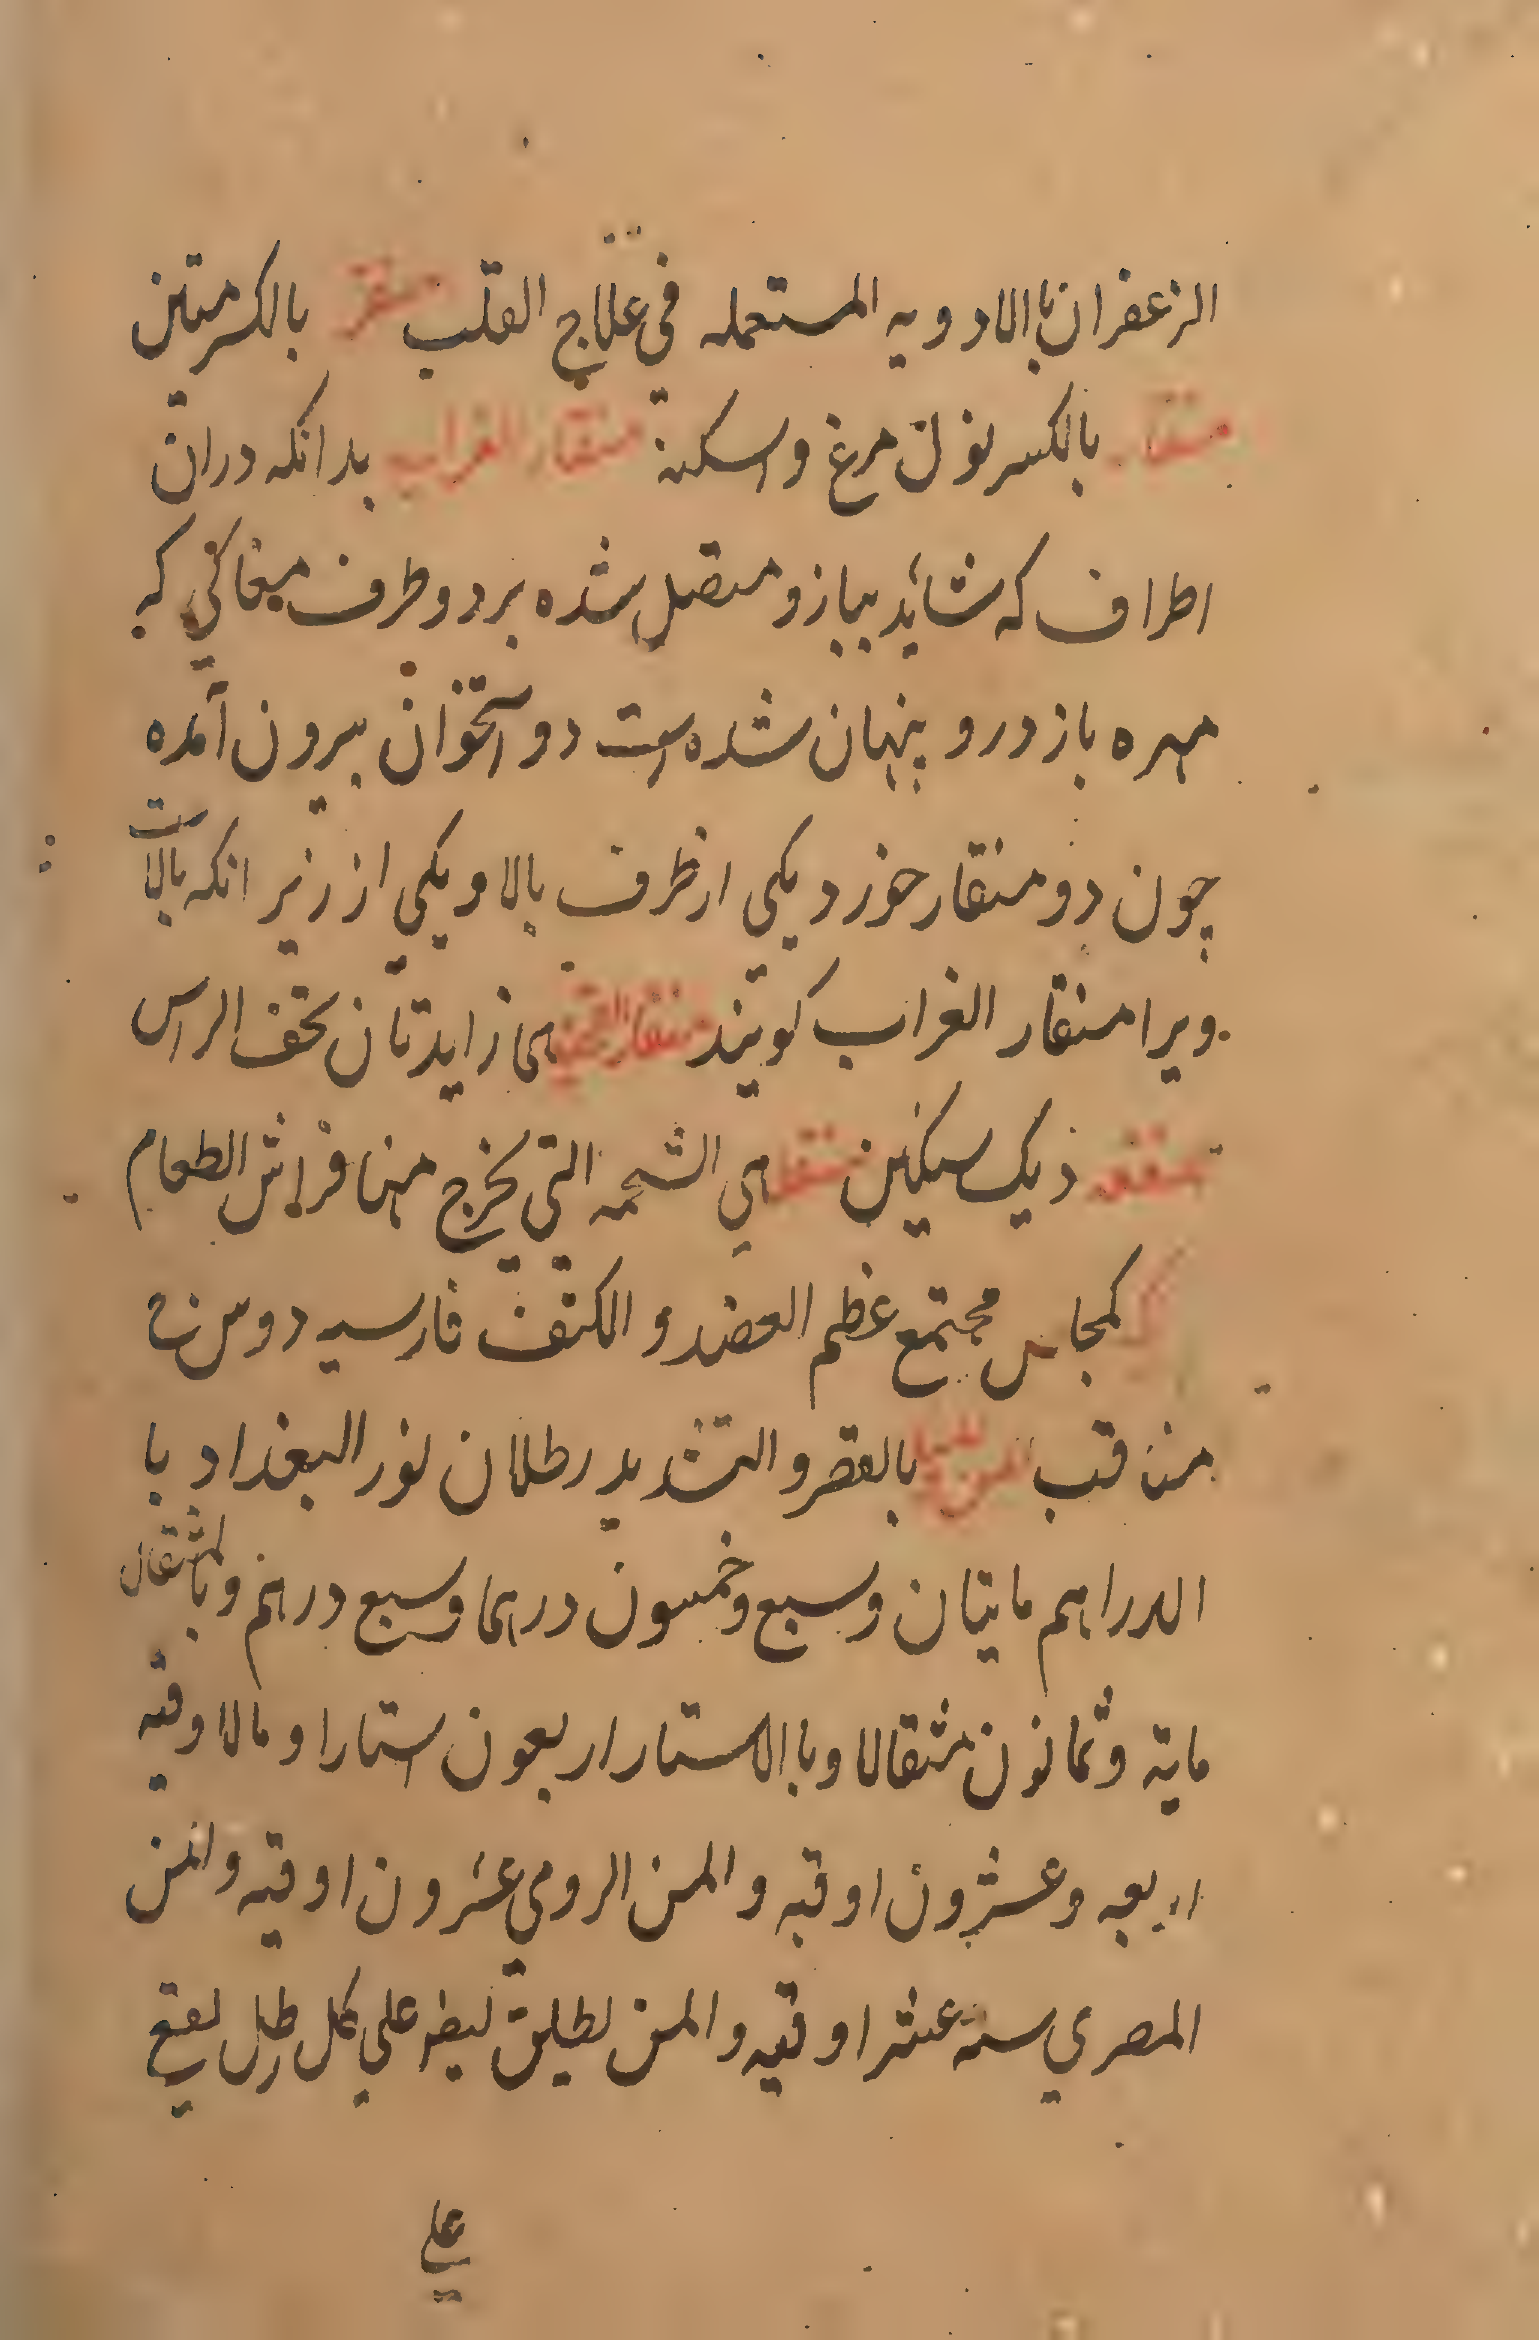 الزعفران باالادویه المستعمله فی علاج القلب منقر بالکسر متین
منقار بالکسر نول مرغ و اسکنه منقار الغراب بدانکه دران
اطراف که شائد ببازو متصل شده بر دو طرف مغاکی که
مهره بازو درو پنهان شده است دو استخوان بیرون آمده
چون دو منقار خورد یکی از طرف بالا و یکی از زیر انکه بالاست
ویرا منقار الغراب کویند منقار هما زایدتان تحف الراس
منقعه دیک سنکین هی الشحمه التی یخرج منها فراش الطعام
کمجلس مجتمع عظم العضد و الکتف فارسیه دوس
مناقب بالقصر و التشدید رطلان نور البغداد با
الدراهم مایتان و سبع و خمسون درهما و سبع درهم و بالمثقال
مایة و ثمانون مثقالا و باالاستار اربعون استارا و مالاوقیه
اربعه و عشرون اوقیه و المن الرومی عشرون اوقیه والمن
المصری ستة عشر اوقیه و المن لطلق لیطر علی کل رطل لقع
علی